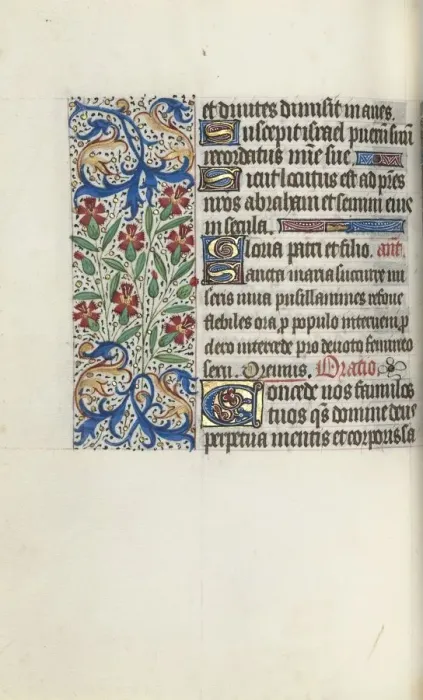 et divites dimisit inanes.
Suscepit israel puerum suum
recordatus mie sue
Sicut locutus est ad pres
nros abraham et semini eius
in secula.
Gloria patri et filio. ant
Sancta maria succurre mi
seris iuua pusillanimes refoue
flebiles ora p populo interueni p
clero intercede pro deuoto femineo
sexu. Oremus. Oratio
Concede nos famulos
tuos qs domine deus
perpetua mentis et corporis sa